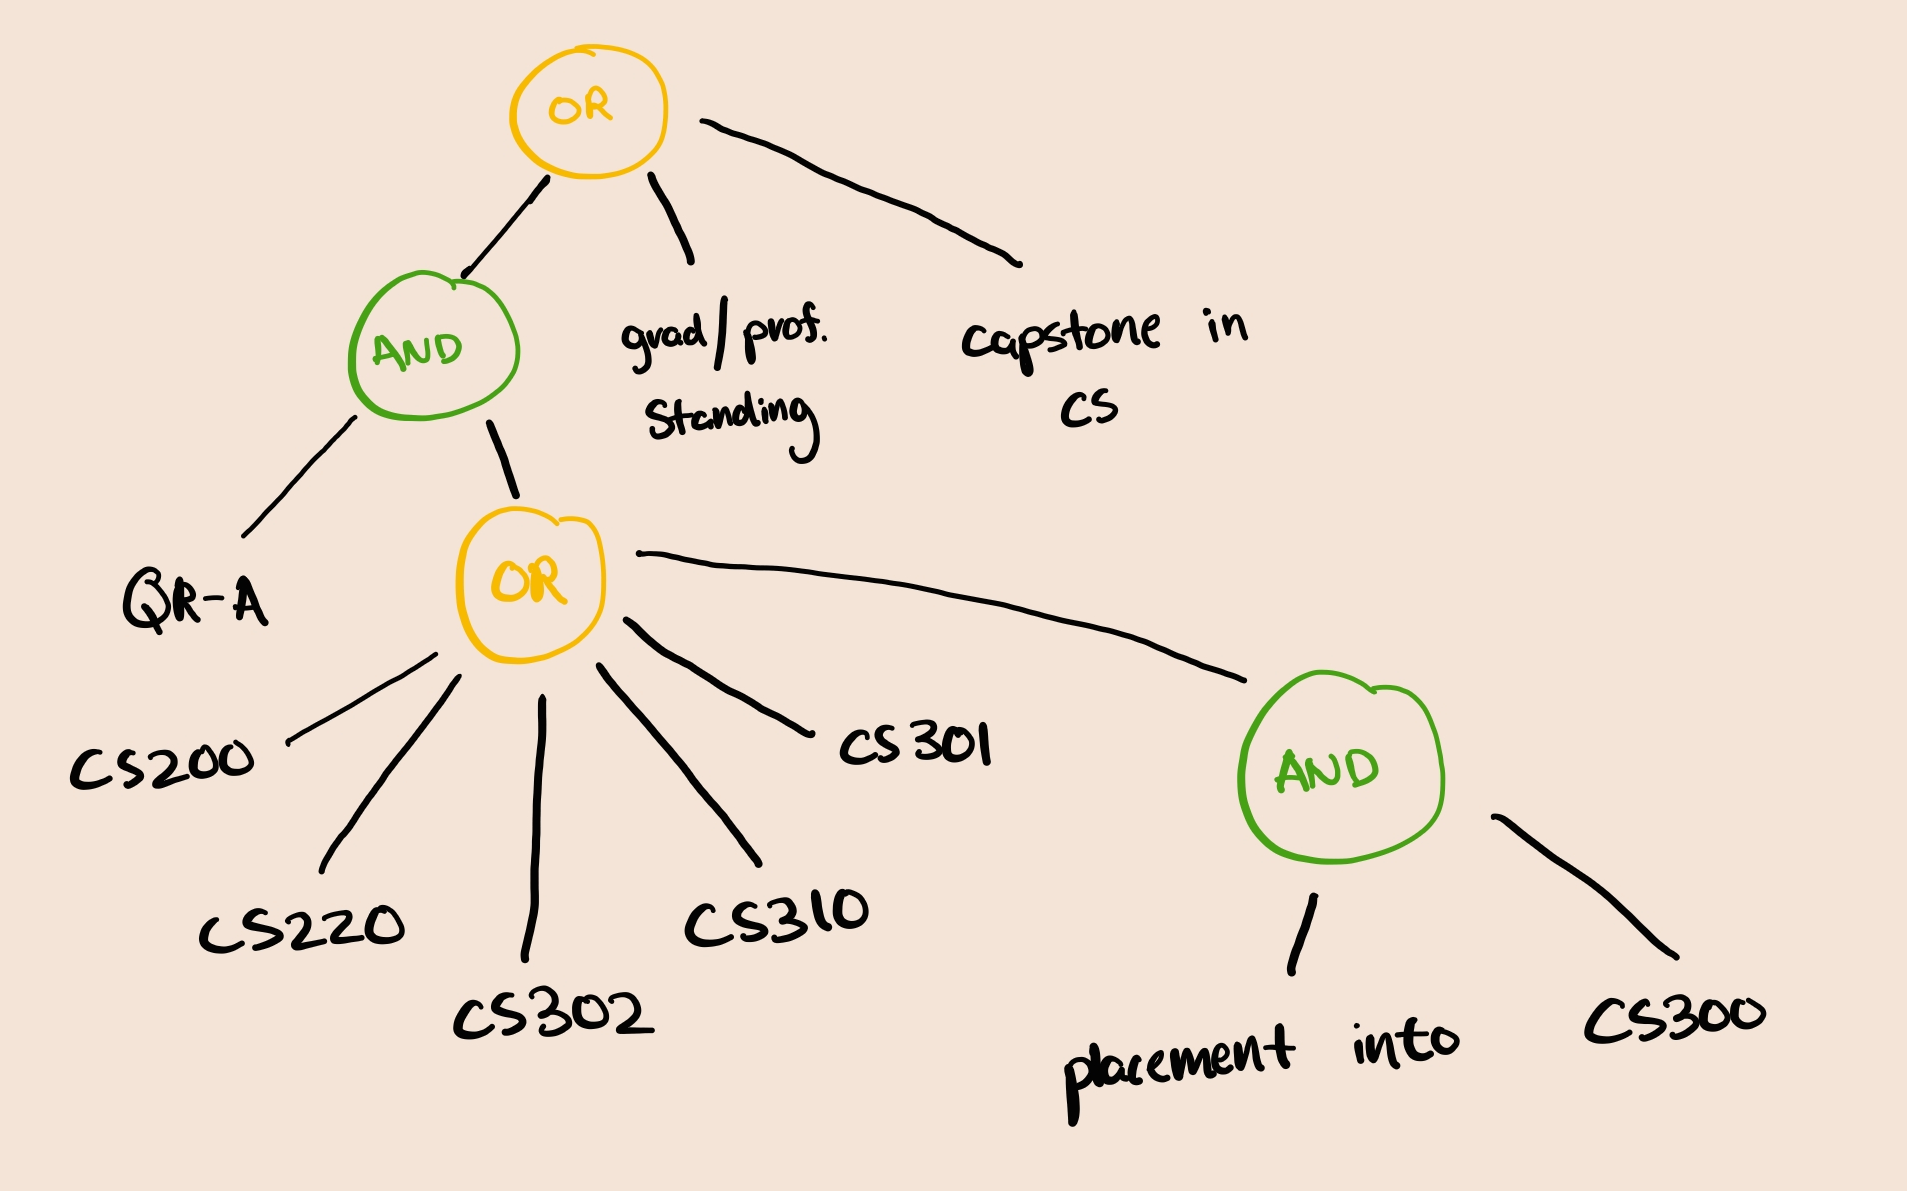 OR
AND
grad/prof.
standing
capstone in
CS
QR-A
OR
CS200
CS220
CS302
CS310
CS301
AND
placement into
CS300